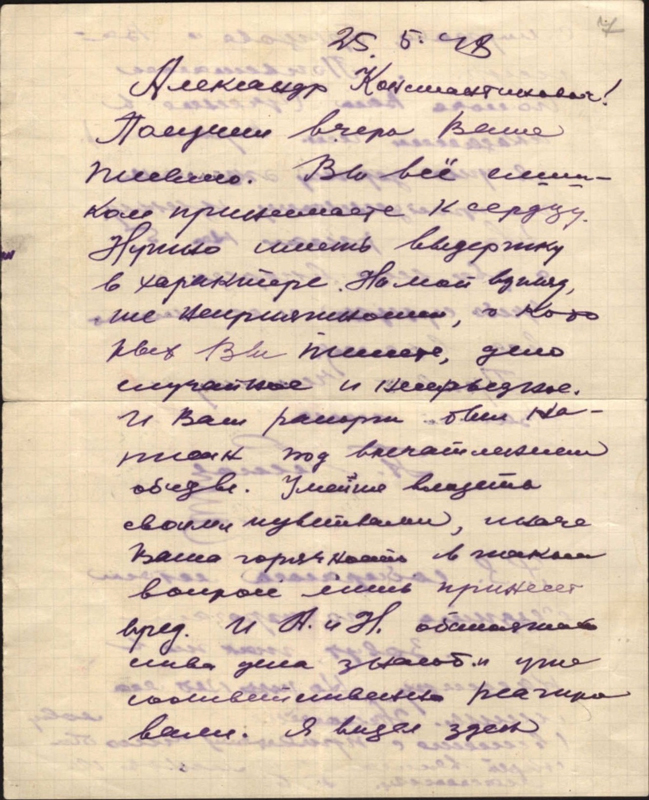 25. 5. 48
Александр Константинович!
Получил вчера Ваше
письмо. Вы всё слиш-
ком принимаете к сердцу.
Нужно иметь выдержку
в характере. На мой взгляд,
те неприятности, о кото
рых Вы пишете, дело
случайное и непредвид.
И Ваш рапорт был на-
писан под впечатлением
обиды. Умейте владеть
своими чувствами, иначе
Ваша горячность в таком
вопросе лишь принесет
вред. И А. и Н. обстоятель
ства дела знают и уже
соответственно реагиро
вали. Я видел здесь